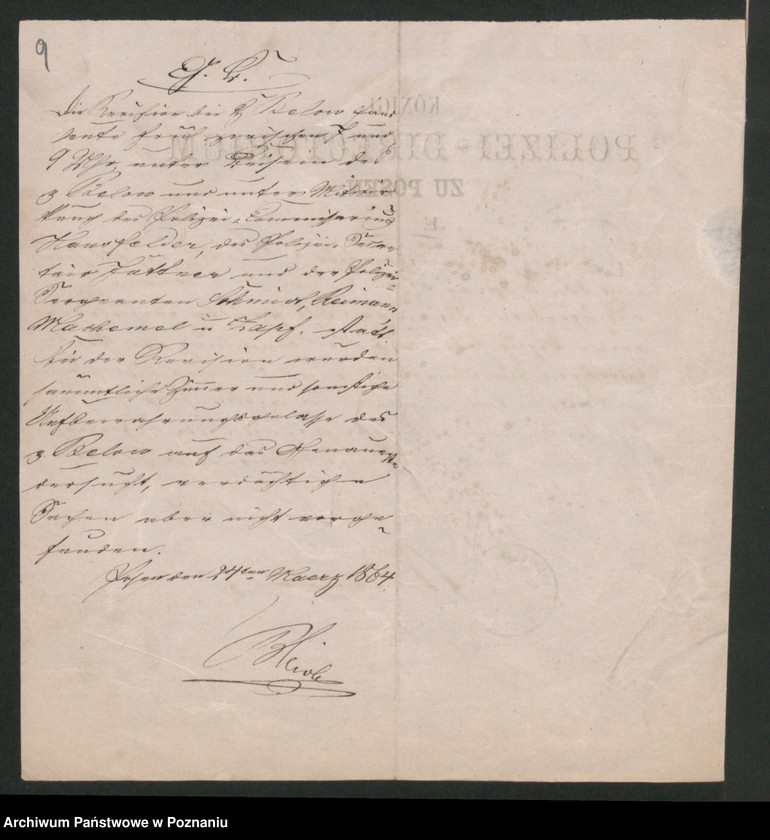 9
Die Revision bei v Below fand
heute früh zwischen 7 und
9 Uhr, unter Beisein des
v Below und unter Mitwir
kung des Polizei-Commissarius
des Polizei-Secre-
tair und der Polizei-
Sergeanten Schmidt, Reimann
u Zapf. statt
Bei der Revision wurden
sämmtliche Zimmer und sonstige
Aufbewahrungsgelasse des
v Below auf das Genaueste
dursucht, verdächtige
Sachen aber nicht vorge-
funden.
Posen den 24ten Maerz 1864.
KÖNIGL.
POLIZEI-DIREKTORIUM
ZU POSEN
Archiwum Państwowe w Poznaniu